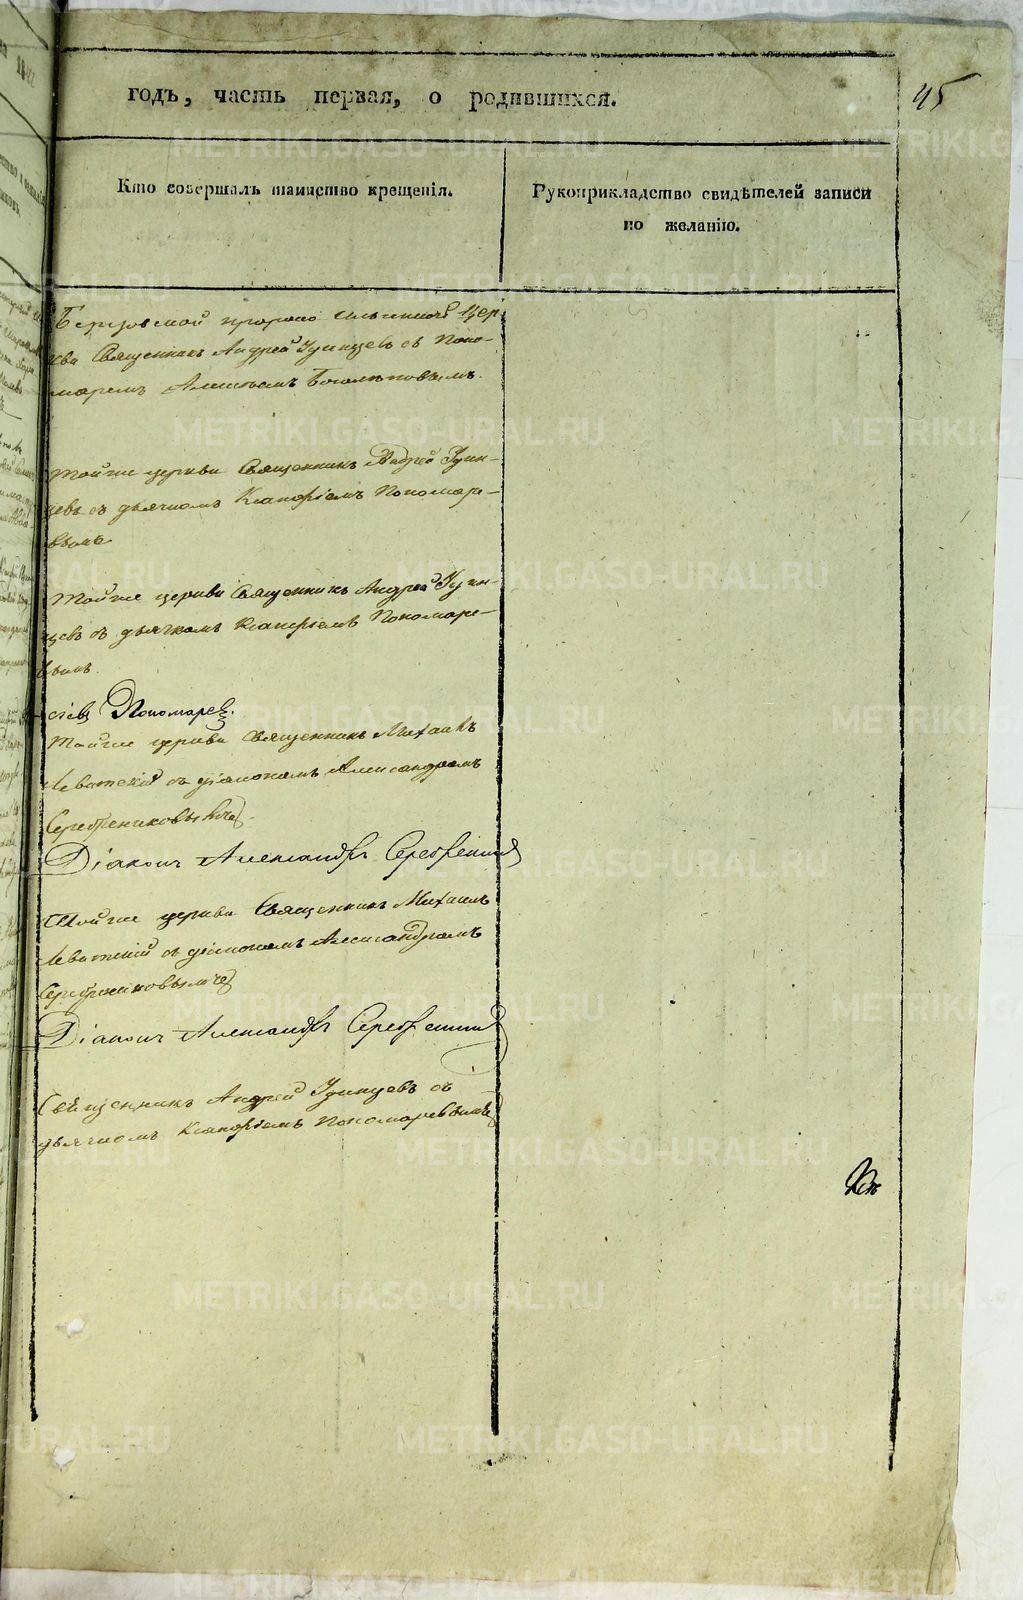 годъ, часть первая, о родившихся.
45
Кто совершалъ таинство крещенія.
Рукоприкладство свидѣтелей записи
по желанію.
Березовской пророко Ильинской Цер-
кви Священникъ Андрей Удинцевъ съ Поно-
маремъ Алексѣемъ Боголѣповымъ.
Тойже церкви Священникъ Андрей Удин-
цевъ съ дьячкомъ Ксанфіемъ Пономаре-
вымъ
Тойже церкви Священникъ Андрей Удин-
цевъ съ дьячкомъ Ксанфіемъ Пономаре-
вымъ
Пономаревъ.
Тойже церкви Священникъ Михаилъ
Левитскій съ діакономъ Александромъ
Серебрениковымъ.
Діаконъ Александръ
Тойже церкви Священникъ Михаилъ
Левитскій съ діакономъ Александромъ
Серебрениковымъ
Діаконъ Александръ
Священникъ Андрей Удинцевъ съ
дьячкомъ Ксанфіемъ Пономаревымъ
METRIKI.GASO-URAL.RU